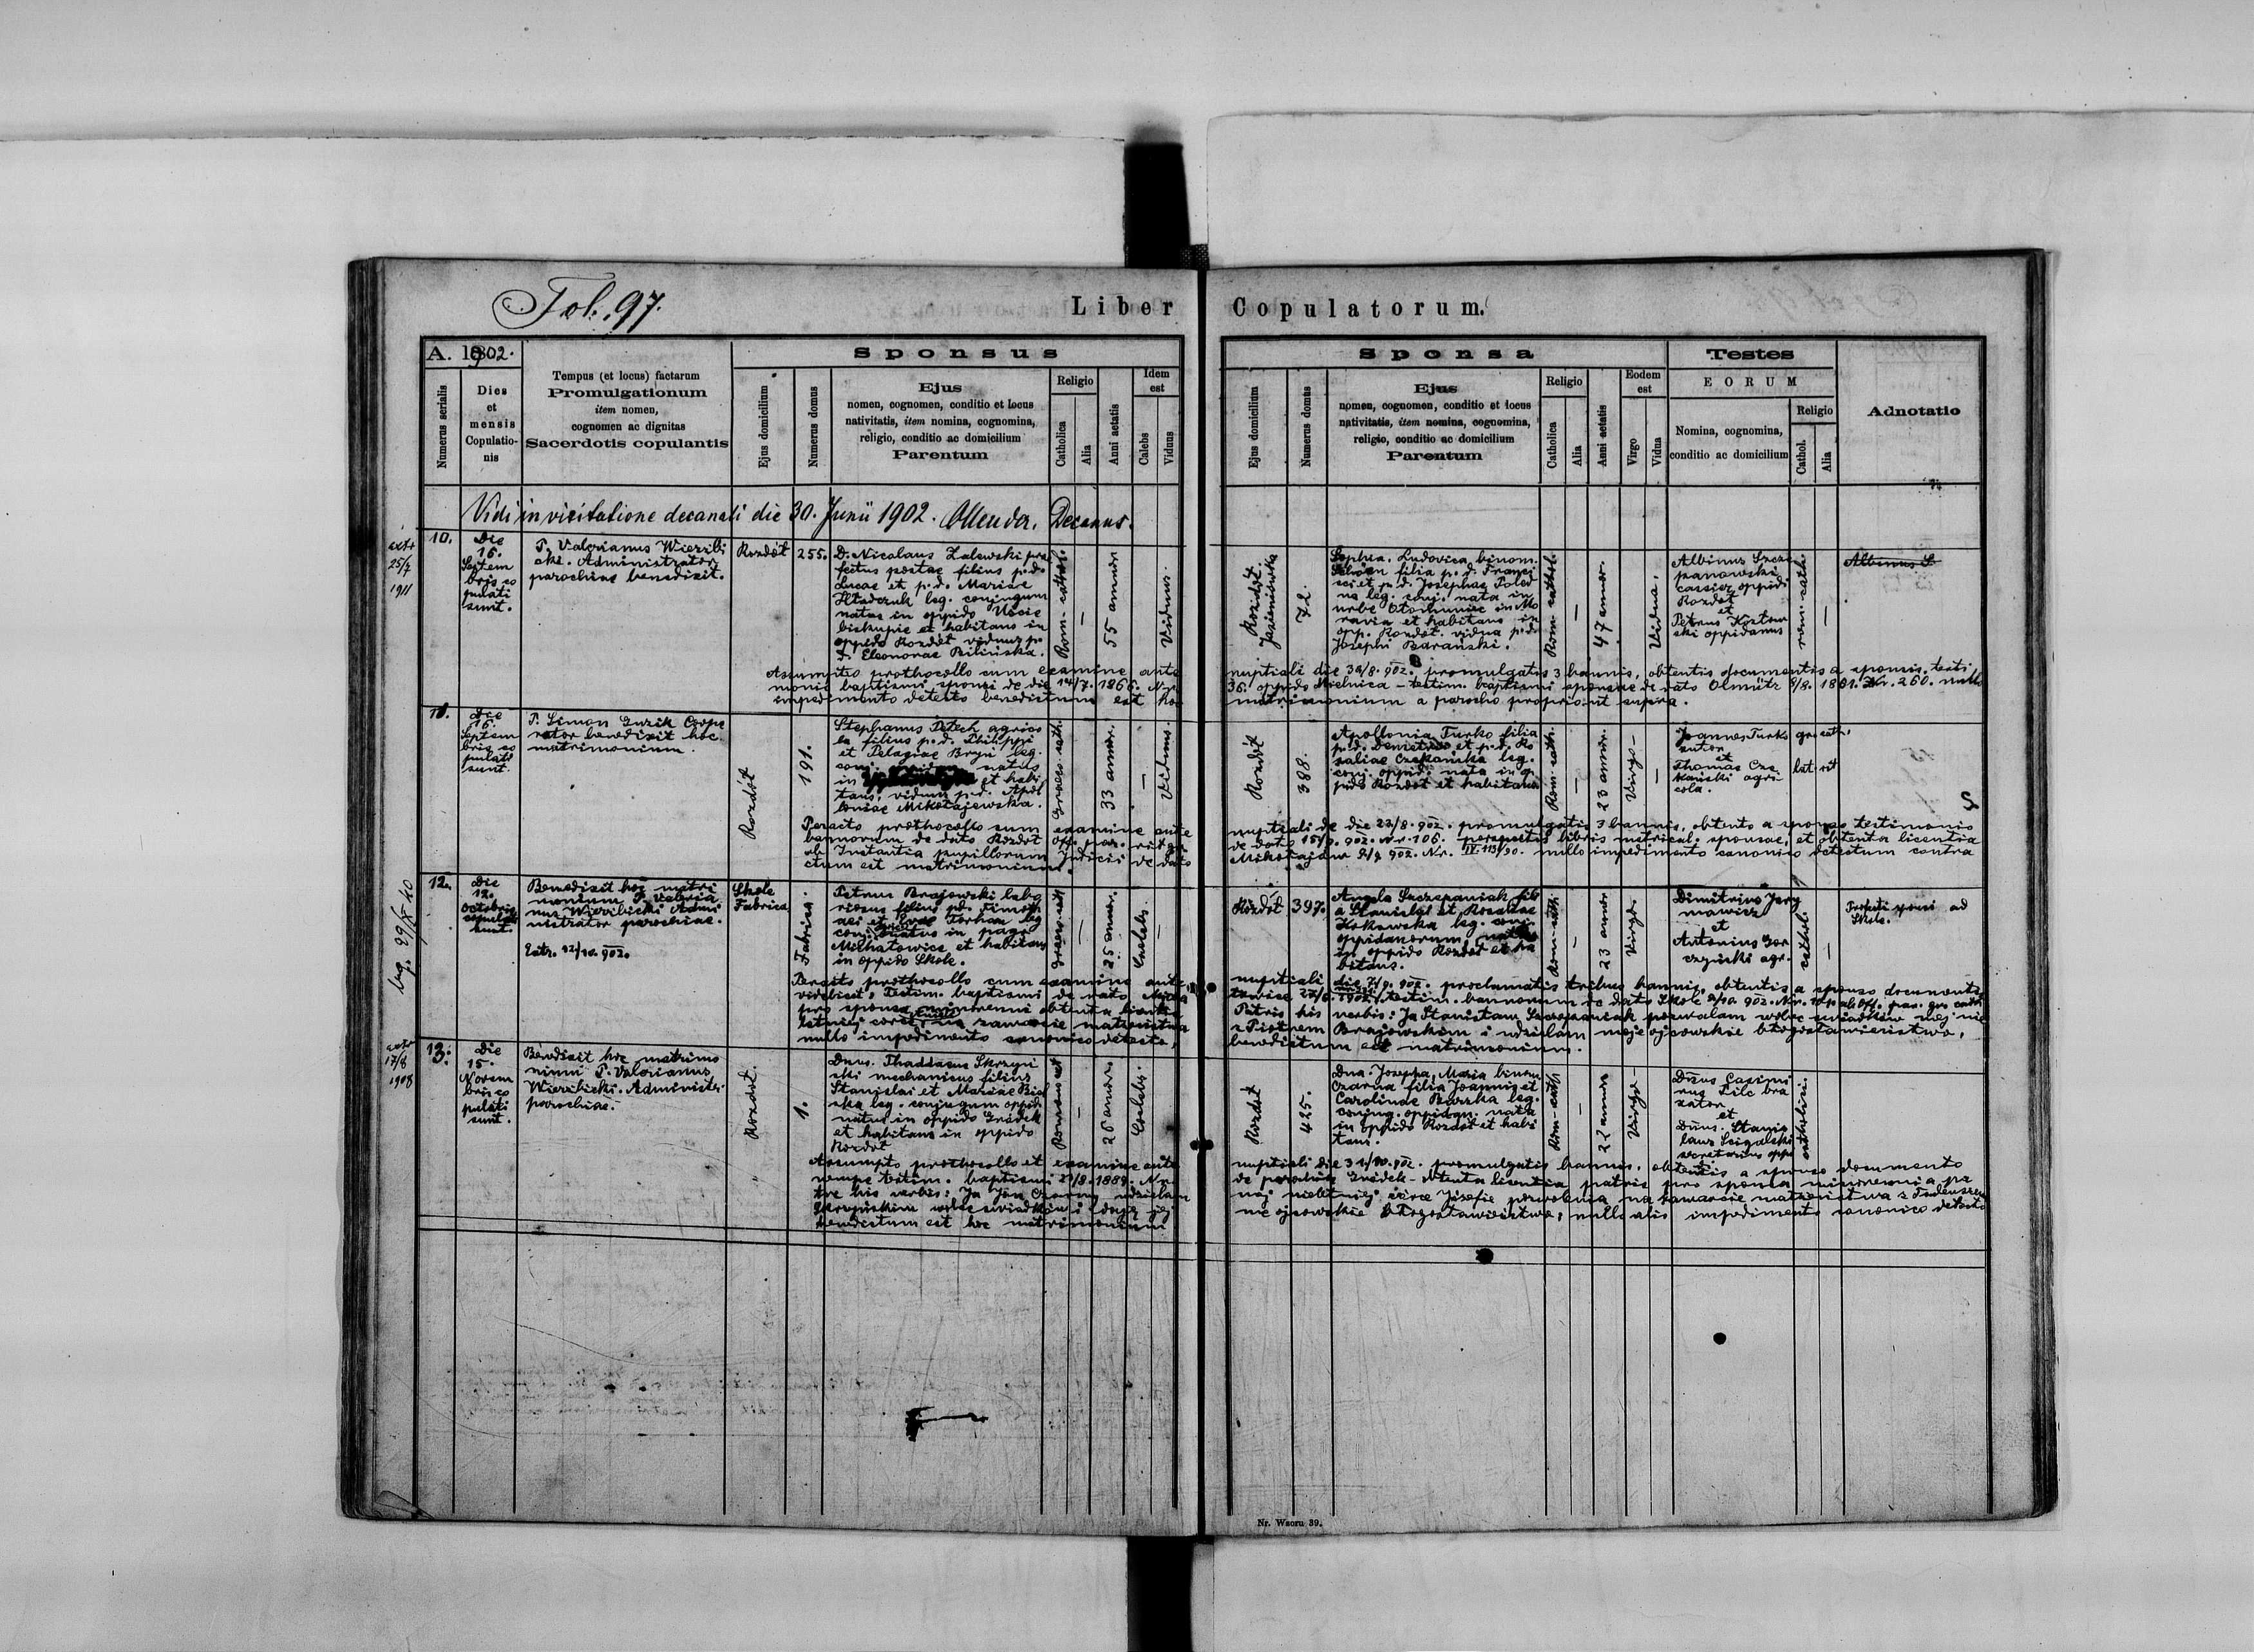 Fol. 97.
Liber Copulatorum.
A. 1902.
Numerus serialis
Dies
et
mensis
Copulatio-
nis
Tempus (et locus) factarum
Promulgationum
item nomen,
cognomen ac dignitas
Sacerdotis copulantis
Sponsus
Ejus domicilium
Numerus domus
Ejus
nomen, cognomen, conditio et locus
nativitatis, item nomina, cognomina,
religio, conditio ac domicilium
Parentum
Religio
Catholica
Alia
Anni aetatis
Idem
est
Caelebs
Viduus
Sponsa
Ejus domicilium
Numerus domus
Ejus
nomen, cognomen, conditio et locus
nativitatis, item nomina, cognomina,
religio, conditio ac domicilium
Parentum
Religio
Catholica
Alia
Anni aetatis
Eodem
est
Virgo
Vidua
Testes
EORUM
Nomina, cognomina,
conditio ac domicilium
Religio
Cathol.
Alia
Adnotatio
Vidi in visitatione decanali die 30. Junii 1902. Decanus.
extr
25/7
1911
10.
Die
16.
Septem
bris co
pulati
sunt.
P. Valerianus Wierzbi
cki. Administrator
parochiae benedixit.
Rozdół
255.
D. Nicolaus Zalewski prae
fectus postae filius p. d.
Lucae et p. d. Mariae
Hładczuk leg. conjugum
natus in oppido Uście
biskupie et habitans in
oppido Rozdół viduus p.
d. Eleonorae Bilińska.
Rom. cathol.
—
55 annor
Viduus.
Rozdół
72.
Sophia, Ludovica binom.
Schön filia p. d. Franci
sci et p. d. Josephae
leg. conj. nata in
urbe Ołomuniec in Mo
ravia et habitans in
opp. Rozdół. vidua p. d.
Josephi Barański.
Rom. cathol.
—
47 annor.
Vidua.
Albinus Szcze
panowski
cassier oppidi
Rozdół
et
Petrus
oppidanus
rom. cath.
—
Albinus S
Assumpto prothocollo cum examine ante nuptiali die 30/8. 902. promulgatis 3 bannis, obtentis documentis a sponsis, testi
monio baptismi sponsi de die 14/7. 1866. Nr. 36. oppido Mielnica - testim. baptismi sponsae de dato Olmütz 8/8. 1881. Nr. 260. nullo
impedimento detecto benedictum est hoc matrimonium a parocho proprio ut supra.
11.
Die
16.
Septem
bris co
pulati
sunt.
P. Simon Guzik Coope
rator benedixit hoc
matrimonium.
Rozdół
191.
Stephanus agrico
la filius p. d. Philippi
et Pelagiae leg.
conj. natus
in et habi
tans, viduus p. d. Apol
loniae Mikołajewska.
Graeco cath.
33 annor.
—
Viduus.
Rozdół
388.
Apollonia Turko filia
p. d. Demetrii et p. d. Ro
saliae Czekańska leg.
conj. oppid. nata in op
pido Rozdół et habitans
Rom. cath.
—
23 annor.
Virgo —
—
Joannes Turko
sutor
et
Thomas Cze
kański agri
cola.
gr. cath.
lat. rit
Peracto prothocollo cum examine ante nuptiali de die 23/8. 902. promulgatis 3 bannis, obtento a sponso testimonio
bannorum de dato Rozdół off. par. rit. gr. de dato 15/9. 902. Nr. 106. libris metricali sponsae, et obtenta licentia
ab Instantia pupillorum Judicii de dato Mikołajów 2/9 902. Nr. IV 113/90. nullo impedimento canonico detectum contra
ctum est matrimonium.
12.
Die
12.
Octobris
copulati
sunt.
Benedixit hoc matri
monium P. Valeria
nus Wierzbicki Admi
nistrator parochiae.
Extr. 22/10. 902.
Skole
Fabrica
Fabrica.
Petrus Brajowski labo
riosus filius pd. Timoth
aei et Evae leg
conj. natus in pago
Michałowice et habitans
in oppido Skole.
graeco-cath
—
25 annor.
Caelebs.
—
Rozdół
397.
Angela Szczepaniak fili
a Stanislai et Rosaliae
leg. conj.
oppidanorum nata
in oppido Rozdół et ha
bitans.
Rom-cath.
—
23 annor
Virgo.
Dimitrius
et
Antonius Gor
czyński agr.
cathol.
—
Profecti sponsi ad
Skole.
Peracto prothocollo cum examine ante nuptiali die 7/9. 902. proclamatis tribus bannis, obtentis a sponso documentis
videlicet: Testim. baptismi de dato testim. bannorum de dato Skole 902. Nr.
pro sponsa minorenni obtenta licentia Patris his verbis: Ja Stanisław Szczepaniak pozwalam wobec świadków mej nie
letniej córce na zawarcie małżeństwa z Piotrem Brajowskim i udzielam moje ojcowskie błogosławieństwo,
nullo impedimento canonico detecto, benedictum est matrimonium.
extr
17/8
1908
13.
Die
15.
Novem
bris co
pulati
sunt.
Benedixit hoc matrimo
nium P. Valerianus
Wierzbicki. Administr.
parochiae.
Rozdół.
1.
Dnus. Thaddaeus Skrzyń
ski mechanicus filius
Stanislai et Mariae
leg. conjugum oppid.
natus in oppido Gródek
et habitans in oppido
Rozdół
—
26 annor.
Caelebs.
Rozdół
425.
Dna. Josepha, Maria binom
Czarna filia Joannis et
Carolinae leg.
conjug. oppidan. nata
in oppido Rozdół et habi
tans.
Rom-cath
—
22 annor
Virgo —
Dnus Casimi
rus Pilc
et
Dnus. Stanis
laus
secretarius oppi
Assumpto prothocollo et examine ante nuptiali die 31/10. 902. promulgatis bannis, obtentis a sponso documento
nempe testim. baptismi 1889. Nr. de parochia Gródek - obtenta licentia patris pro sponsa minorennia pa
tre his verbis: Ja Jan Czarny udzielam mej nieletniej córce Józefie pozwolenia na zawarcie małżeństwa z Tadeuszem
Skrzyńskim wobec świadków i daję jej me ojcowskie błogosławieństwo, nullo alio impedimento canonico detecto
benedictum est hoc matrimonium
Nr. Wzoru 39.